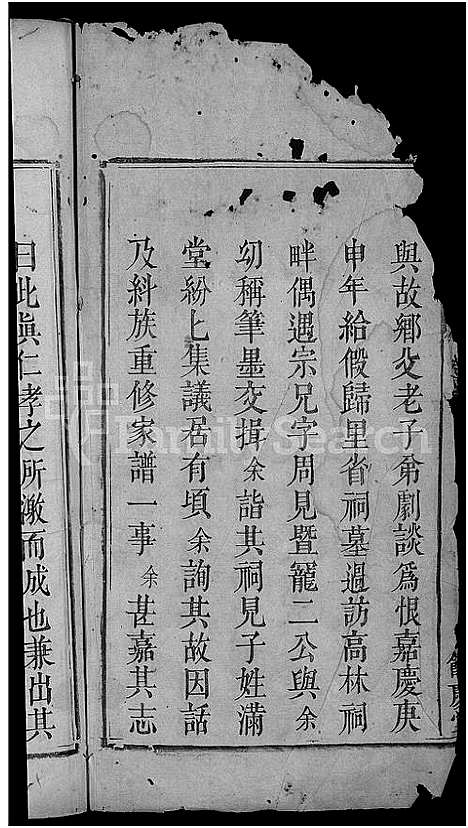 與故鄉父老子弟劇談爲恨嘉慶庚
申年給假歸里省祠墓過訪高林祠
畔偶遇宗兄字周見暨龍二公與余
幼稱筆墨交揖余詣其祠見子姓滿
堂紛上集議居有頃余詢其故因話
及糾族重修家譜一事余甚嘉其志
曰此眞仁孝之所激而成也兼出其
FamilySearch